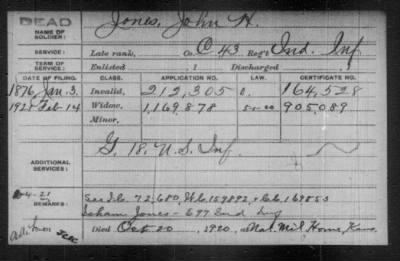 DEAD
NAME OF SOLDIER: Jones, John H.
SERVICE: Late rank, Co. C 43 Reg't Ind. Inf.
TERM OF SERVICE: Enlisted , 1 Discharged , 1
DATE OF FILING. CLASS. APPLICATION NO. LAW. CERTIFICATE NO.
1876 Jan. 3. Invalid, 212,305 164,528
1921 Feb 14 Widow, 1,169,878 905,089
Minor,
ADDITIONAL SERVICES: G. 18. U.S. Inf.
REMARKS: 72,680, 159892, 169853
Jones - 697 Ind
Died Oct 20 , 1920, at Nat. Mil. Home, Kans.